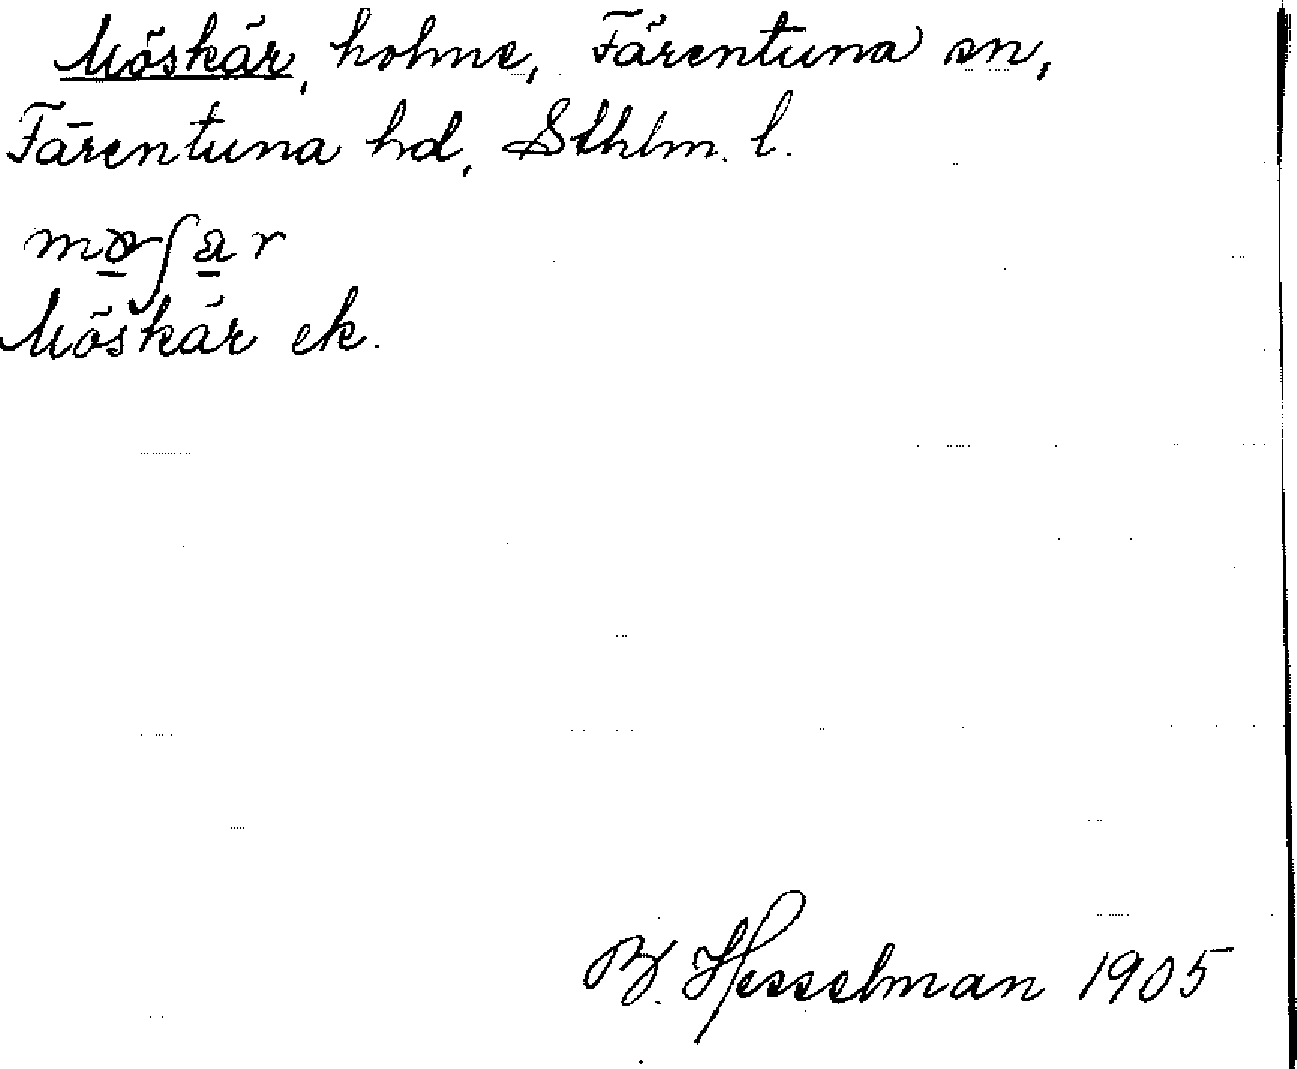 Möskär, holme, Färentuna sn,
Färentuna hd, Sthlm. l.
Möskär ek.
B. Hesselman 1905